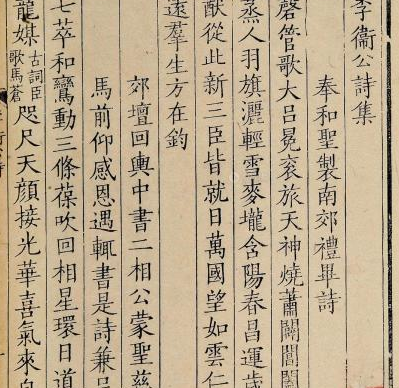 李衞公詩集
奉和聖製南郊禮畢詩
磬管歌大呂冕衮旅天神燒蕭闢閶闔
蒸人羽旗灑輕雪麥壠含陽春昌運歲
猷從此新三臣皆就日萬國望如雲仁
遠羣生方在鈞
郊壇回輿中書二相公蒙聖慈
馬前仰感恩遇輒書是詩兼呈
七萃和鸞動三條葆吹回相星環日道
龍媒古詞臣歌馬蒼咫尺天顔接光華喜氣來自